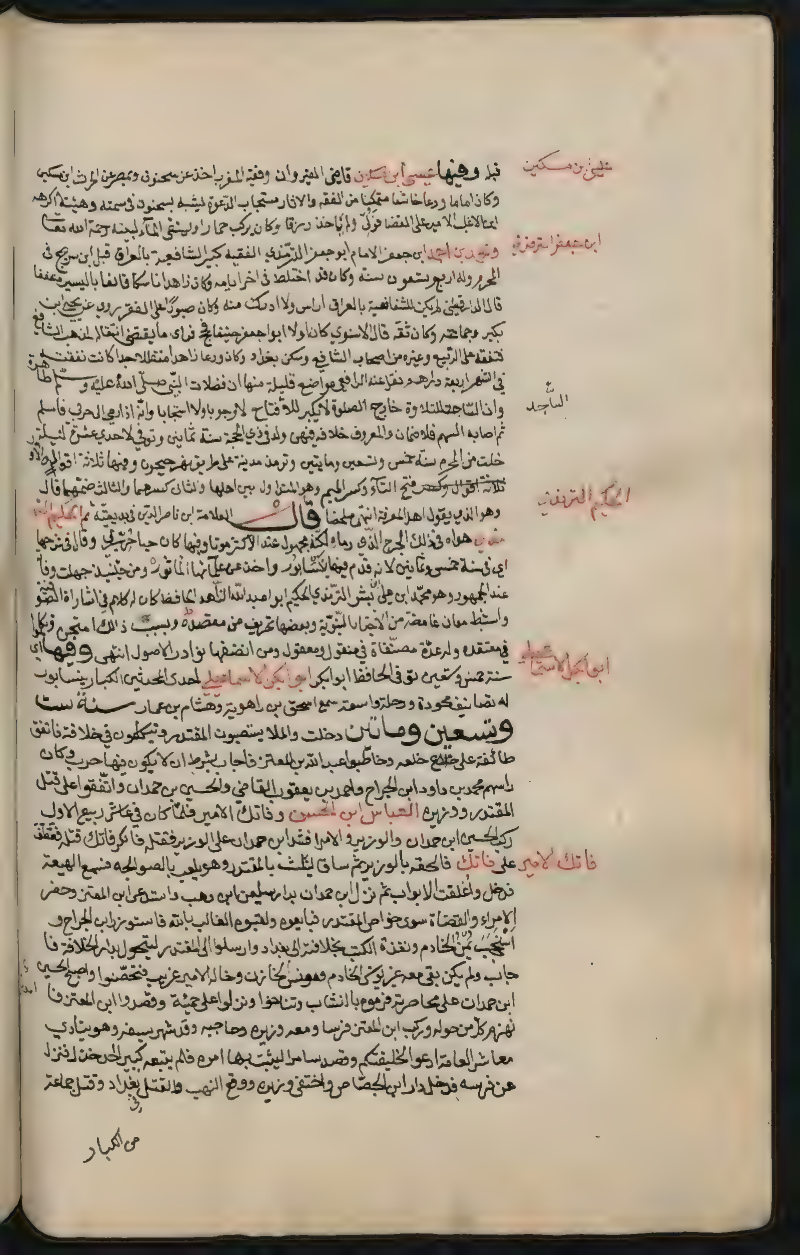 قبله وفيها عيسى ابن مسكين قاضي القيروان وفقيه المغرب اخذ عن سحنون وبمصر عن الحرث ابن مسكين
عيسى بن مسكين
وكان اماما ورعا خاشعا متمكنا من الفقه والاثار مستجاب الدعوة يشبه بسحنون في سمته وهيئته اكرهه
ابن الاغلب الامير على القضا فولي ولم ياخذ رزقا وكان يركب حمارا ويستقي الماء لبيته رحمه الله تعالى
ومحمد بن احمد ابن جعفر الامام ابو جعفر الترمذي الفقيه كبير الشافعية بالعراق قبل ابن سريج في
ابن جعفر الترمذي
المحرم وله اربع وتسعون سنة وكان قد اختلط في اخر ايامه وكان زاهدا ناسكا قانعا باليسير متعففا
قال الدارقطني لم يكن للشافعية بالعراق اراس ولا اورع منه وكان صبورا على الفقر روى عن يحيى ابن
بكير وجماعة وكان ثقة قال الاسنوي كان اولا ابو جعفر حنفيا فحج فراى ما يقتضي انتقاله لمذهب الشافعي
فتفقه على الربيع وغيره من اصحاب الشافعي وسكن بغداد وكان ورعا زاهدا متقللا جدا كانت نفقته
في الشهر اربعة دراهم نقل عنه الرافعي مواضع قليلة منها ان فضلات النبي صلى الله عليه وسلم طاهرة
وان الساجد للتلاوة خارج الصلوة لا يكبر للافتاح لا وجوبا ولا استحبابا وانه اذا رمى الى حربي فاسلم
الساجد
ثم اصابه السهم فلا ضمان والمعروف خلافه فيهن ولد في ذي الحجة سنة ثمانين وتوفي لاحدى عشرة ليلة
خلت من المحرم سنة خمس وتسعين ومايتين وترمذ مدينة على طريق نهر جيحون وفيها ثلاثة اقوال
ثلاثة اقوال فتح التاء وكسر الميم وهو المتداول بين اهلها والثاني كسرهما والثالث ضمهما قال
وهو الذي يقول اهل المعرفة انتهى ملخصا قال العلامة ابن ناصر الدين في بديعيته ثم الحكيم الترمذي
الحكيم الترمذي
هواه في ذلك الجرح الذي رماه لكنه مجهول عند الاكثر موتا وفيها كان حيا وقال في شرحها
اي في سنة خمس وثمانين لانه قدم فيها نيسابور واخذ عن علمائها الماثور ومن حينئذ جهلت وفاته
عند الجمهور وهو محمد ابن علي بن بشر الترمذي الحكيم ابو عبد الله الزاهد الحافظ كان له كلام في اشارات الصوفية
واستنبط معان غامضة من الاخبار النبوية وبعضها تحريف عن مقصده وبسبب ذلك امتحن
في معتقده وله عدة مصنفات في منقول ومعقول ومن انضفها نوادر الاصول انتهى وفيها اي
سنة خمس وتسعين توفي الحافظ ابو بكر ابو بكر الاسماعيلي احدى المحدثين الكبار بنيسابور
ابو بكر الاسماعيلي
له تصانيف مجودة ورحلة واسعة سمع اسحق بن راهوية وهشام بن عمار سنة ست
وتسعين ومائتين دخلت والملا يستصبون المقتدر ويتكلمون في خلافته فاتفق
طائفة على خلعه وخاطبوا عبد الله بن المعتز فاجاب بشرط ان لا يكون فيها حرب وكان
راسهم محمد بن داود ابن الجراح واحمد بن يعقوب القاضي والحسين بن حمدان واتفقوا على قتل
المقتدر ووزيره العباس ابن الحسن وفاتك الامير فلما كان في عاشر ربيع الاول
ركب الحسين ابن حمدان والوزير والامرا فشد ابن حمدان على الوزير فقتله فانكر فاتك قتله فعطف
على فاتك فالحقه بالوزير ثم ساق ليثلث بالمقتدر وهو يلعب بالصوالجة فسمع الهيعة
فاتك الامير
فدخل واغلقت الابواب ثم نزل ابن حمدان بدار سليمن ابن وهب واستدعى ابن المعتز وحضر
الامراء والقضاة سوى خواص المقتدر فبايعوه ولقبوه الغالب بالله فاستوزر ابن الجراح و
استحجب يمن الخادم ونفذت الكتب بخلافته الى بغداد وارسلوا الى المقتدر ليتحول بدار الخلافة فا
جاب ولم يكن بقي معه غير مونس الخادم ومونس الخازن وخاله الامير غريب فتحصنوا واصبح الحسين
ابن حمدان على محاصرته فرموه بالنشاب وتناخوا ونزلوا على حمية وقصدوا ابن المعتز فا
نهزم كل من حوله وركب ابن المعتز فرسا ومعه وزيره وحاجبه وقد شهر سيفه وهو ينادي
معاشر العامة ادعوا لخليفتكم وقصد سامرا ليثبت بها امره فلم يتبعه كبير احد فنزل
عن فرسه فدخل دار ابن الجصاص واختفى وزيره ووقع النهب والقتل في بغداد وقتل جماعة
من الكبار